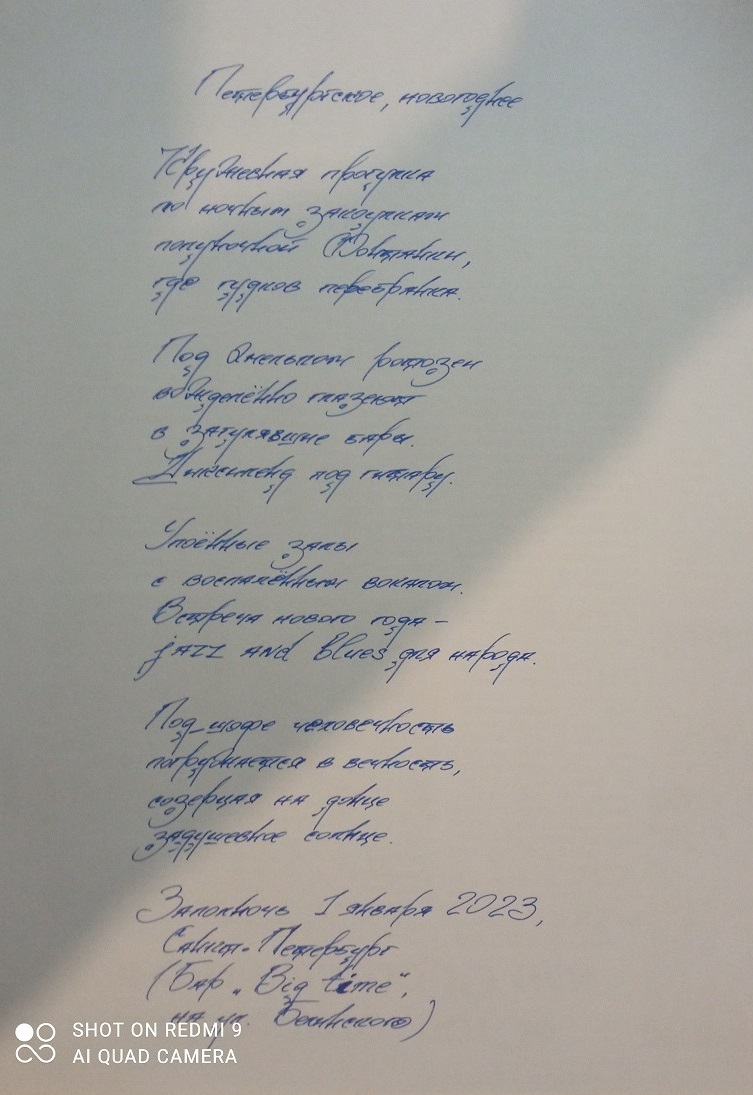 Петербургское, новогоднее
Кружевная прогулка
по ночным закоулкам
полуночной Фонтанки,
где гудков перебранка.
Под хмельком ротозеи
вожделённо глазеют
в загулявшие бары.
Диксиленд под гитару.
Упоённые залы
с воспалённым вокалом.
Встреча нового года –
jazz and blues для народа.
Под-шофе человечность
погружается в вечность,
созерцая на донце
задушевное солнце.
Заполночь 1 января 2023,
Санкт-Петербург
(Бар „Big time“,
на ул. Белинского)
SHOT ON REDMI 9
AI QUAD CAMERA